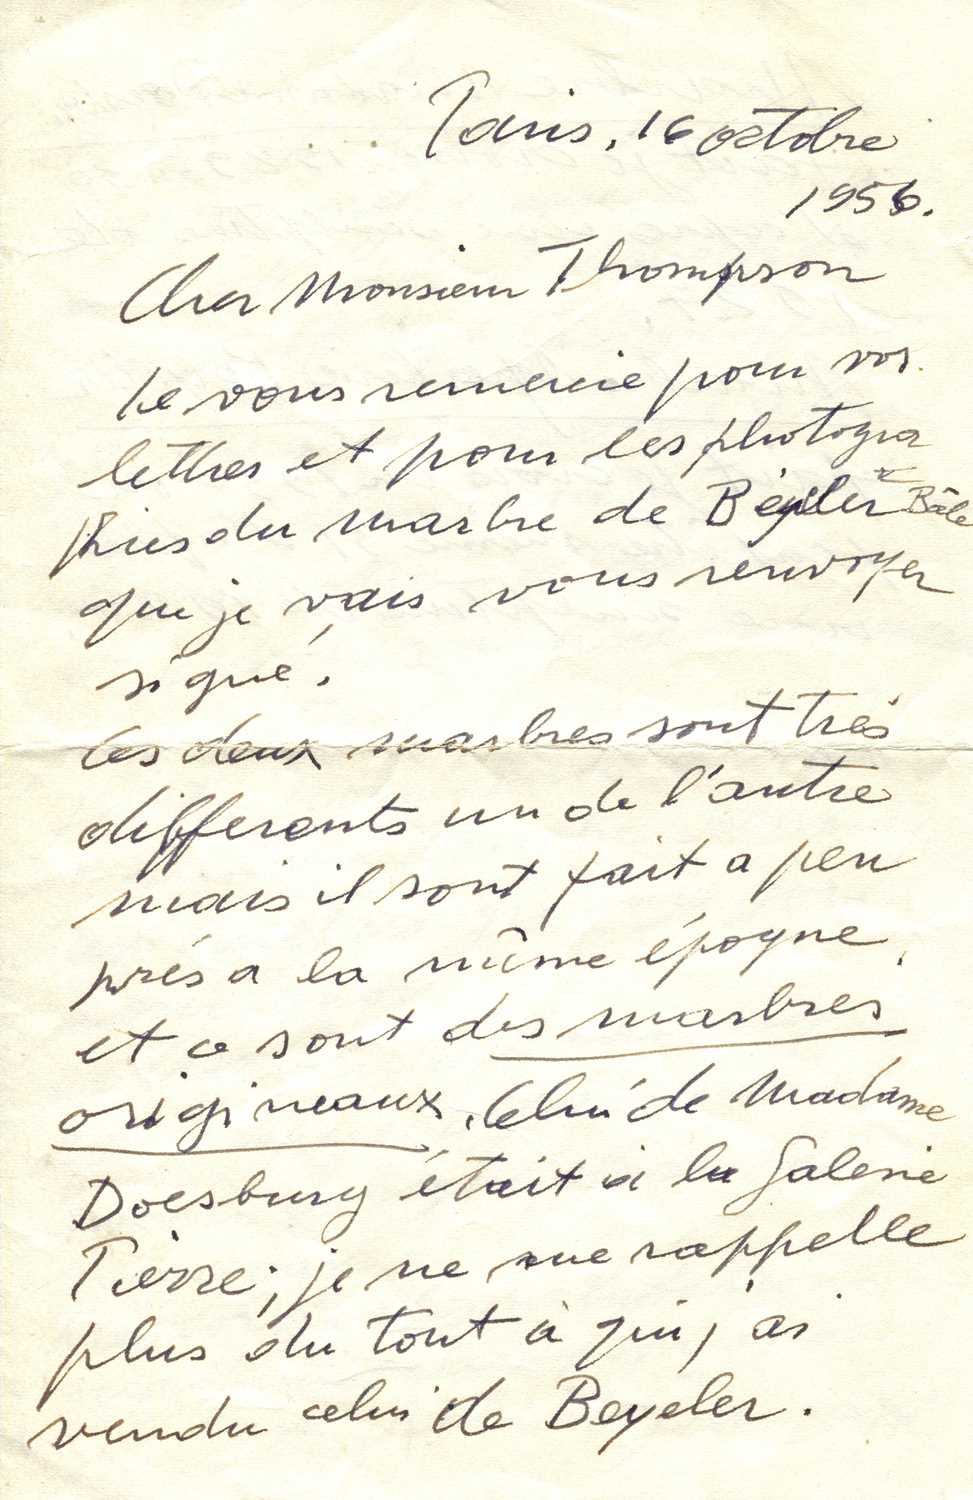 Paris, 16 octobre
1956.
Cher Monsieur Thompson
Je vous remercie pour vos
lettres et pour les photogra
phies du marbre de Beyeler Bâle
que je vais vous renvoyer
signé.
Les deux marbres sont très
differents un de l'autre
mais il sont fait a peu
près a la même époque,
et ce sont des marbres
origineaux. Celui de Madame
Doesburg était à la Galerie
Pierre; je ne me rappelle
plus du tout à qui j'ai
vendu celui de Beyeler.